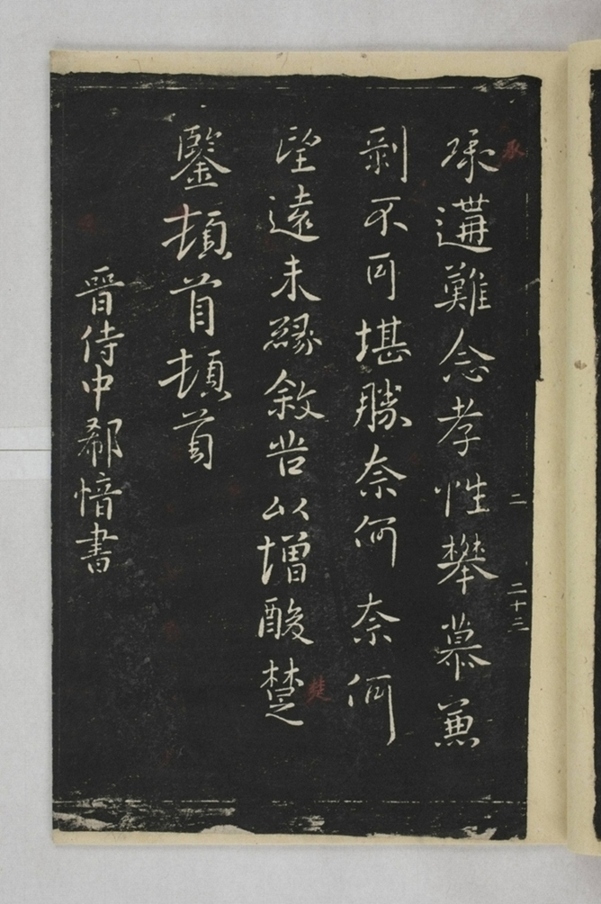 承遘難念孝性攀慕兼
剝不可堪勝奈何奈何
望遠未緣敘苦以增酸楚
鑒頓首頓首
晉侍中郗愔書
二 二十三
承
楚